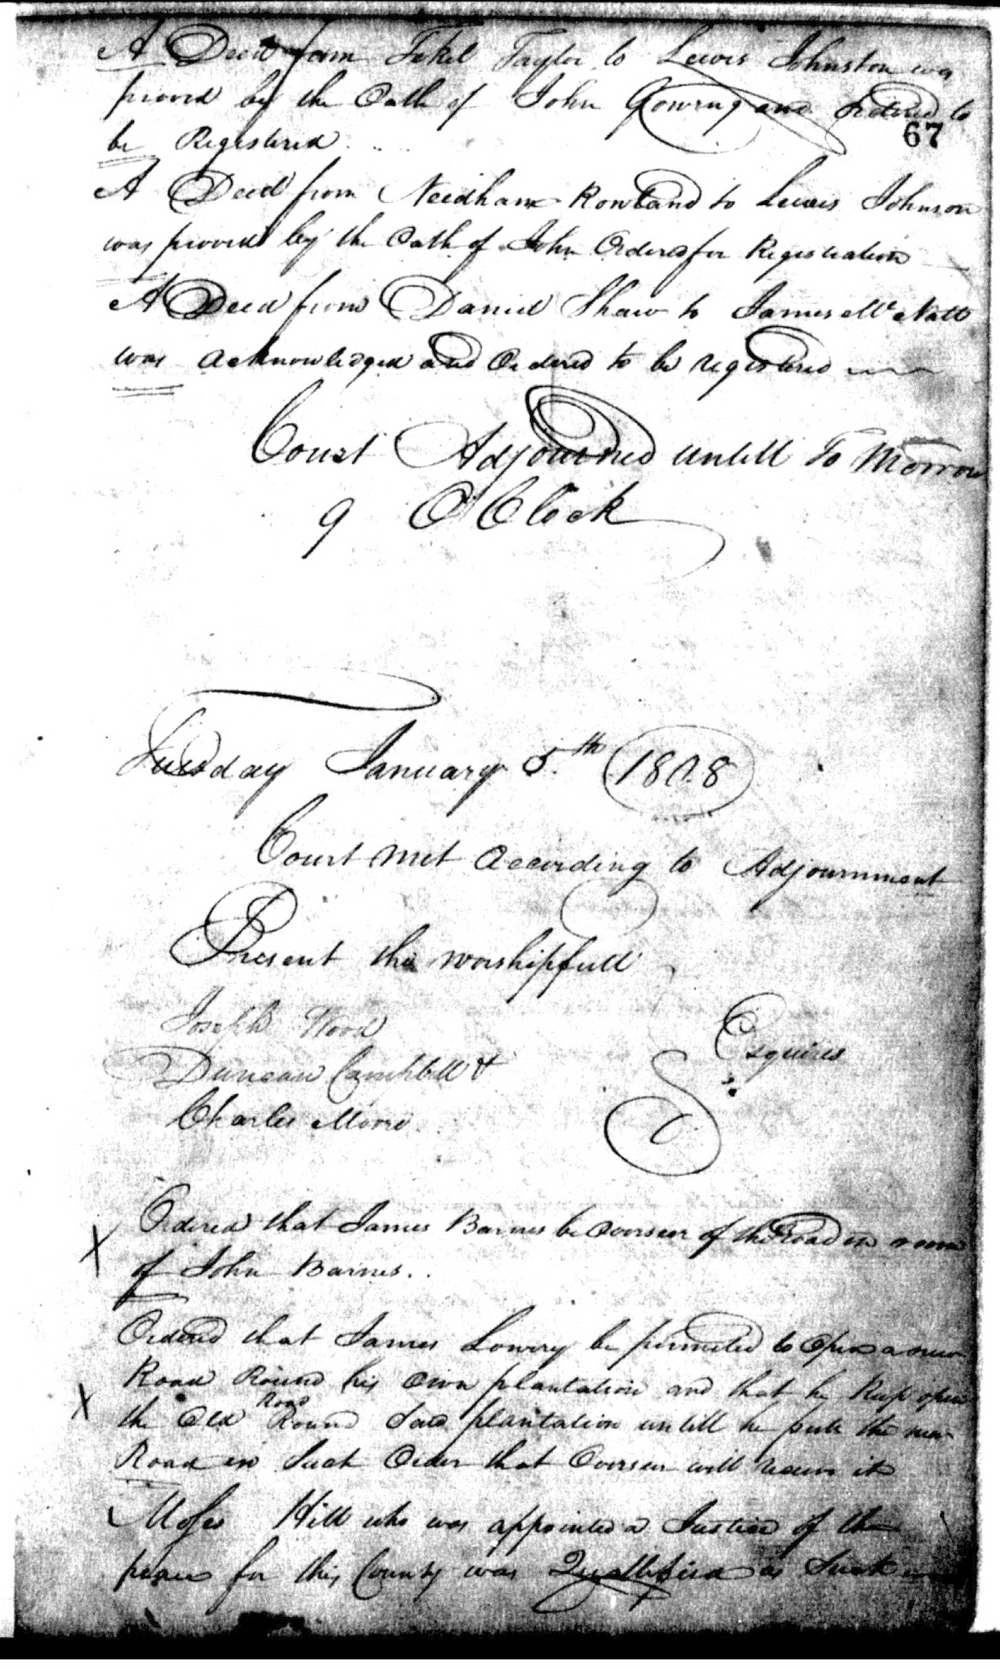 A Deed from Tekel Taylor to Lewis Johnston was
proved by the Oath of John Gowring and Ordered to
67
be Registered
A Deed from Needham Rowland to Lewis Johnson
was proved by the Oath of John Ordered for Registration
A Deed from Daniel Shaw to James McNatt
was acknowledged and Ordered to be registered
Court Adjourned untill To Morrow
9 O Clock
Tuesday January 5th 1808
Court met according to Adjournment
Present the worshipfull
Joseph Wood
Esquires
Duncan Campbell &
Charles Moore
X Ordered that James Barnes be Overseer of the Road in room
of John Barnes..
Ordered that James Lowry be permited to Open a new
Road Round his own plantation and that he Keep open
X the Old Road Round Said plantation untill he puts the new
Road in Such Order that Overseer will receive it
Moses Hill who was appointed a Justice of the
peace for this County was Quallified as Such